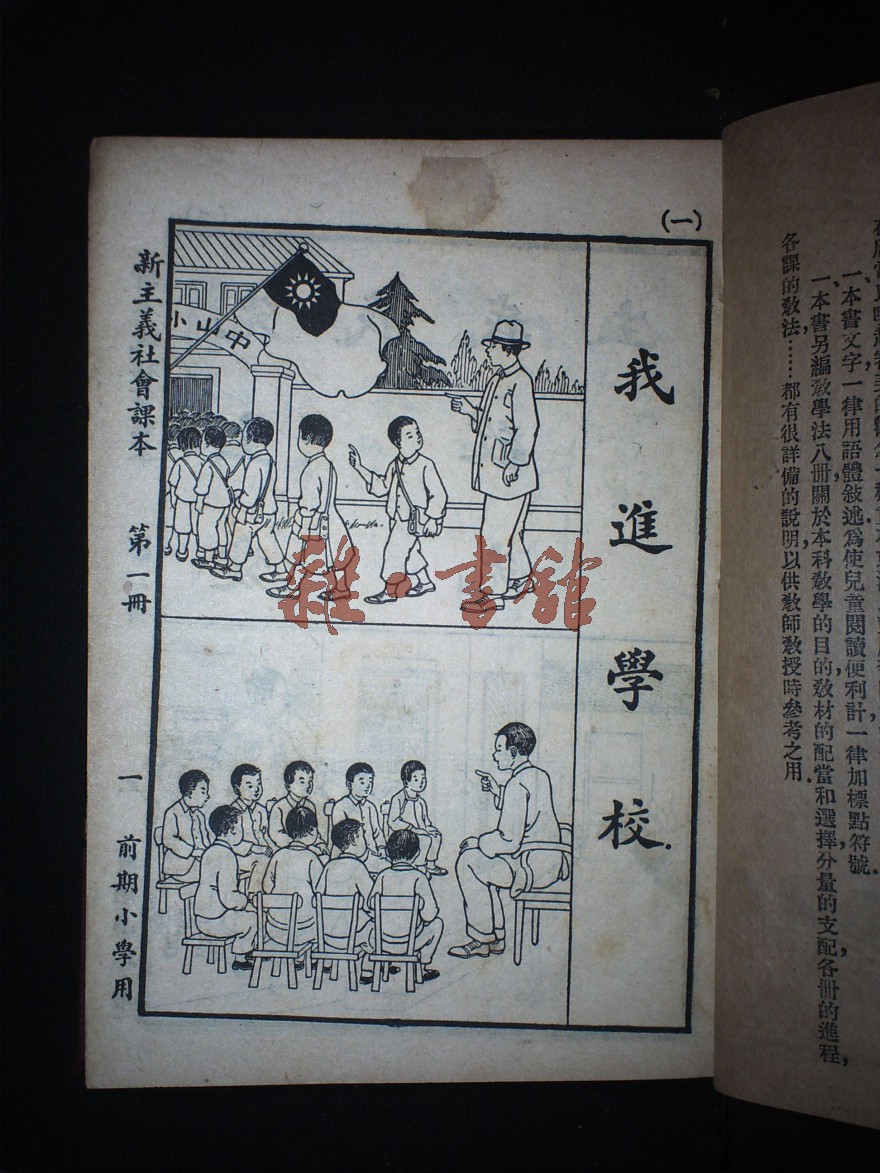 一本書文字一律用語體敘述，爲使兒童閱讀便利計，一律加標點符號.
一本書另編教學法八冊，關於本科教學的目的，教材的配當和選擇，分量的支配，各冊的進程，
各課的教法……都有很詳備的說明，以供教師教授時參考之用.
(一)
我進學校.
中山小
新主義社會課本 第一冊 一 前期小學用
雜·書館